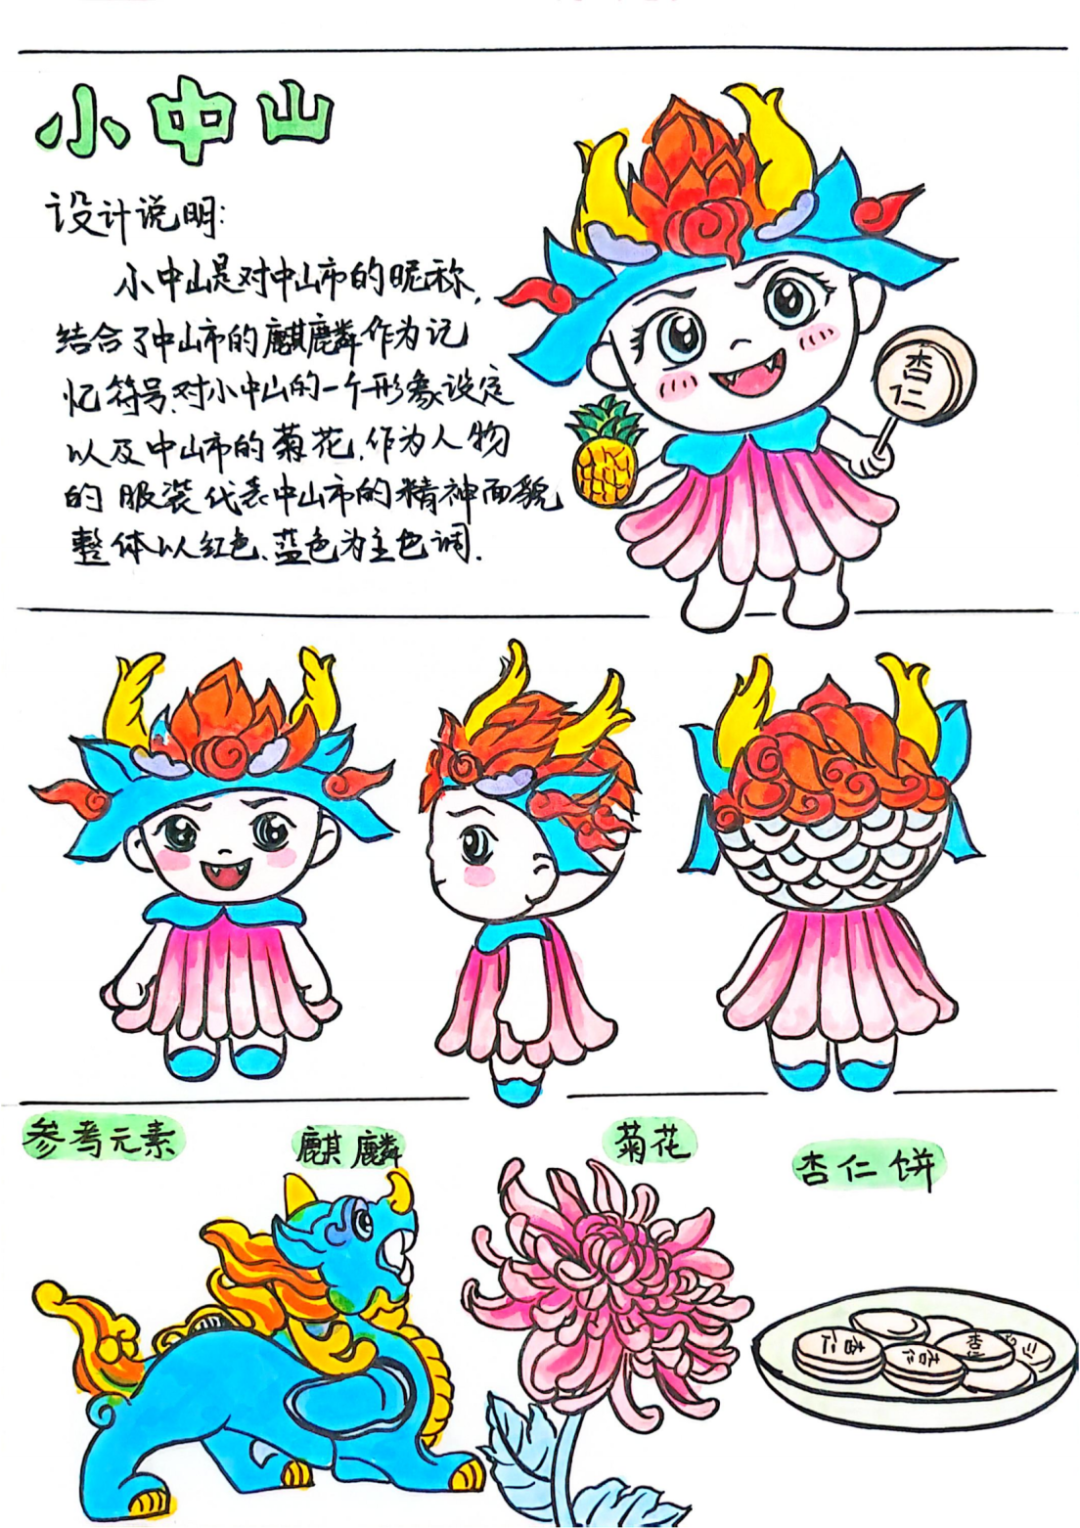 小中山
设计说明:
小中山是对中山市的昵称,
结合了中山市的麒麟作为记
忆符号,对小中山的一个形象设定
以及中山市的菊花,作为人物
的服装代表中山市的精神面貌
整体以红色、蓝色为主色调.
杏仁
参考元素
麒麟
菊花
杏仁饼
杏仁
杏仁
杏仁